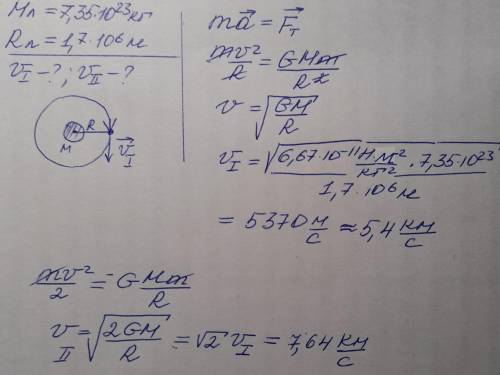 Mл = 7,35·10²³ кг
Rл = 1,7·10⁶ м
v_I - ? ; v_II - ?
R
M
v⃗_I
ma⃗ = F⃗_т
mv²/R = GMm/R²
v = √(GM/R)
v_I = √(6,67·10⁻¹¹ Н·м²/кг² · 7,35·10²³ / 1,7·10⁶ м)
= 5370 м/с ≈ 5,4 км/с
mv²/2 = G Mm/R
v_II = √(2GM/R) = √2 v_I = 7,64 км/с